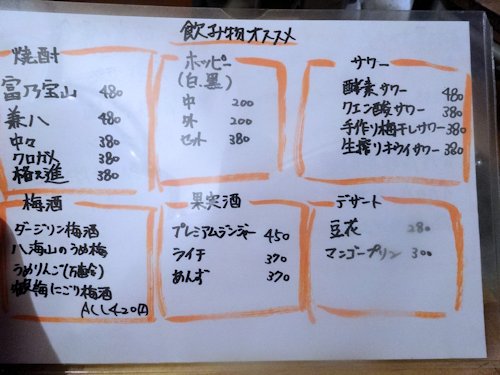 飲み物オススメ
焼酎
富乃宝山 480
兼八 480
中々 380
クロガメ 380
格之進 380
ホッピー
(白.黒)
中 200
外 200
セット 380
サワー
酵素サワー 480
クエン酸サワー 380
手作り梅干しサワー 380
生搾りキウイサワー 380
梅酒
ダージリン梅酒
八海山のうめ梅
うめりんご(万歳)
梅にごり梅酒
ALL420円
果実酒
プレミアムランジャー 450
ライチ 370
あんず 370
デザート
豆花 280
マンゴープリン 300